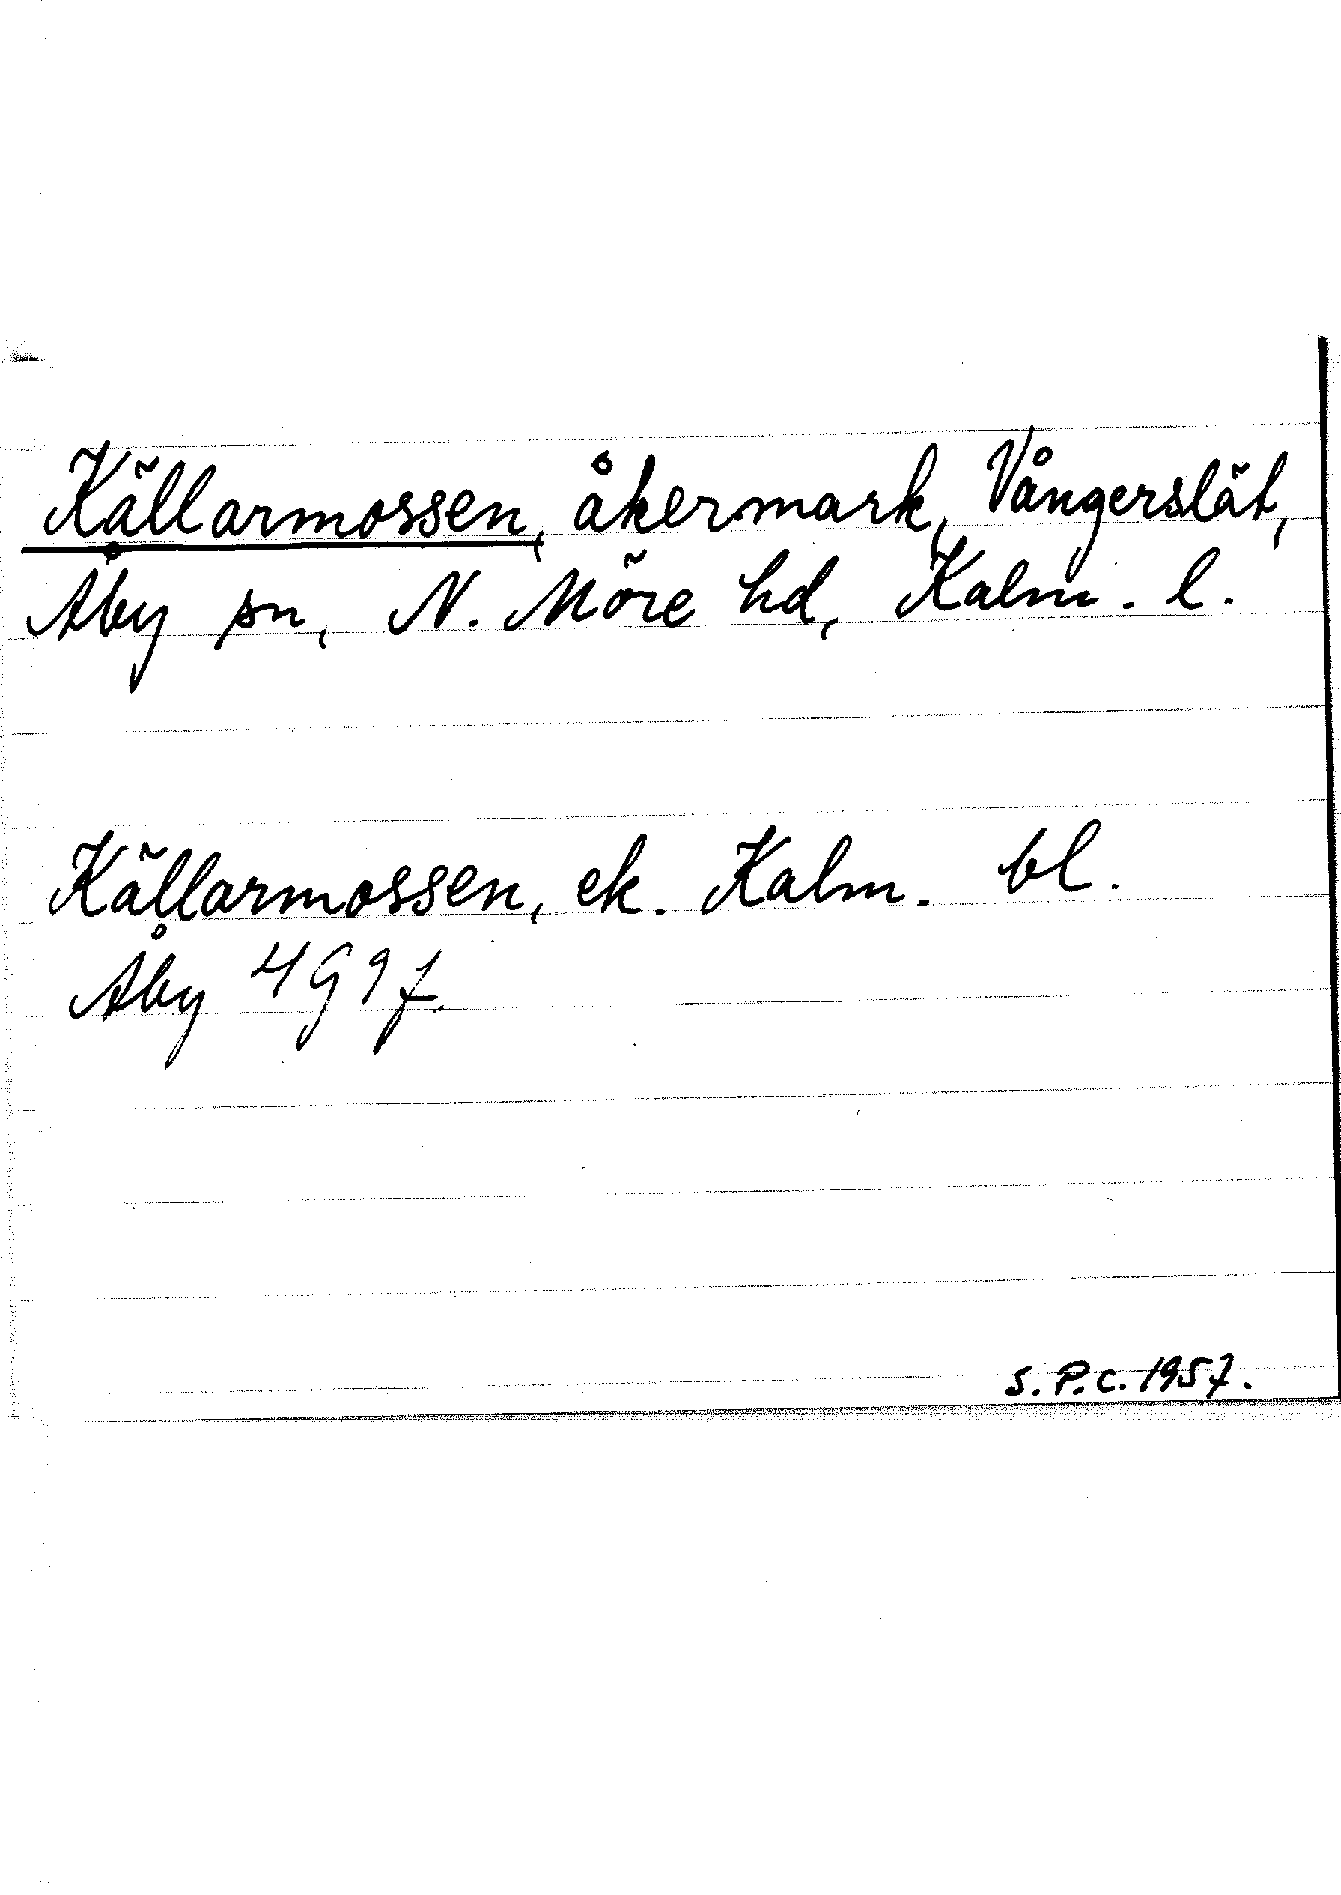 Källarmossen, åkermark, Vångerslät,
Åby sn, N. Möre hd, Kalm. l.
Källarmossen, ek. Kalm. bl.
Åby 4G 9f.
S.P.C. 1957.